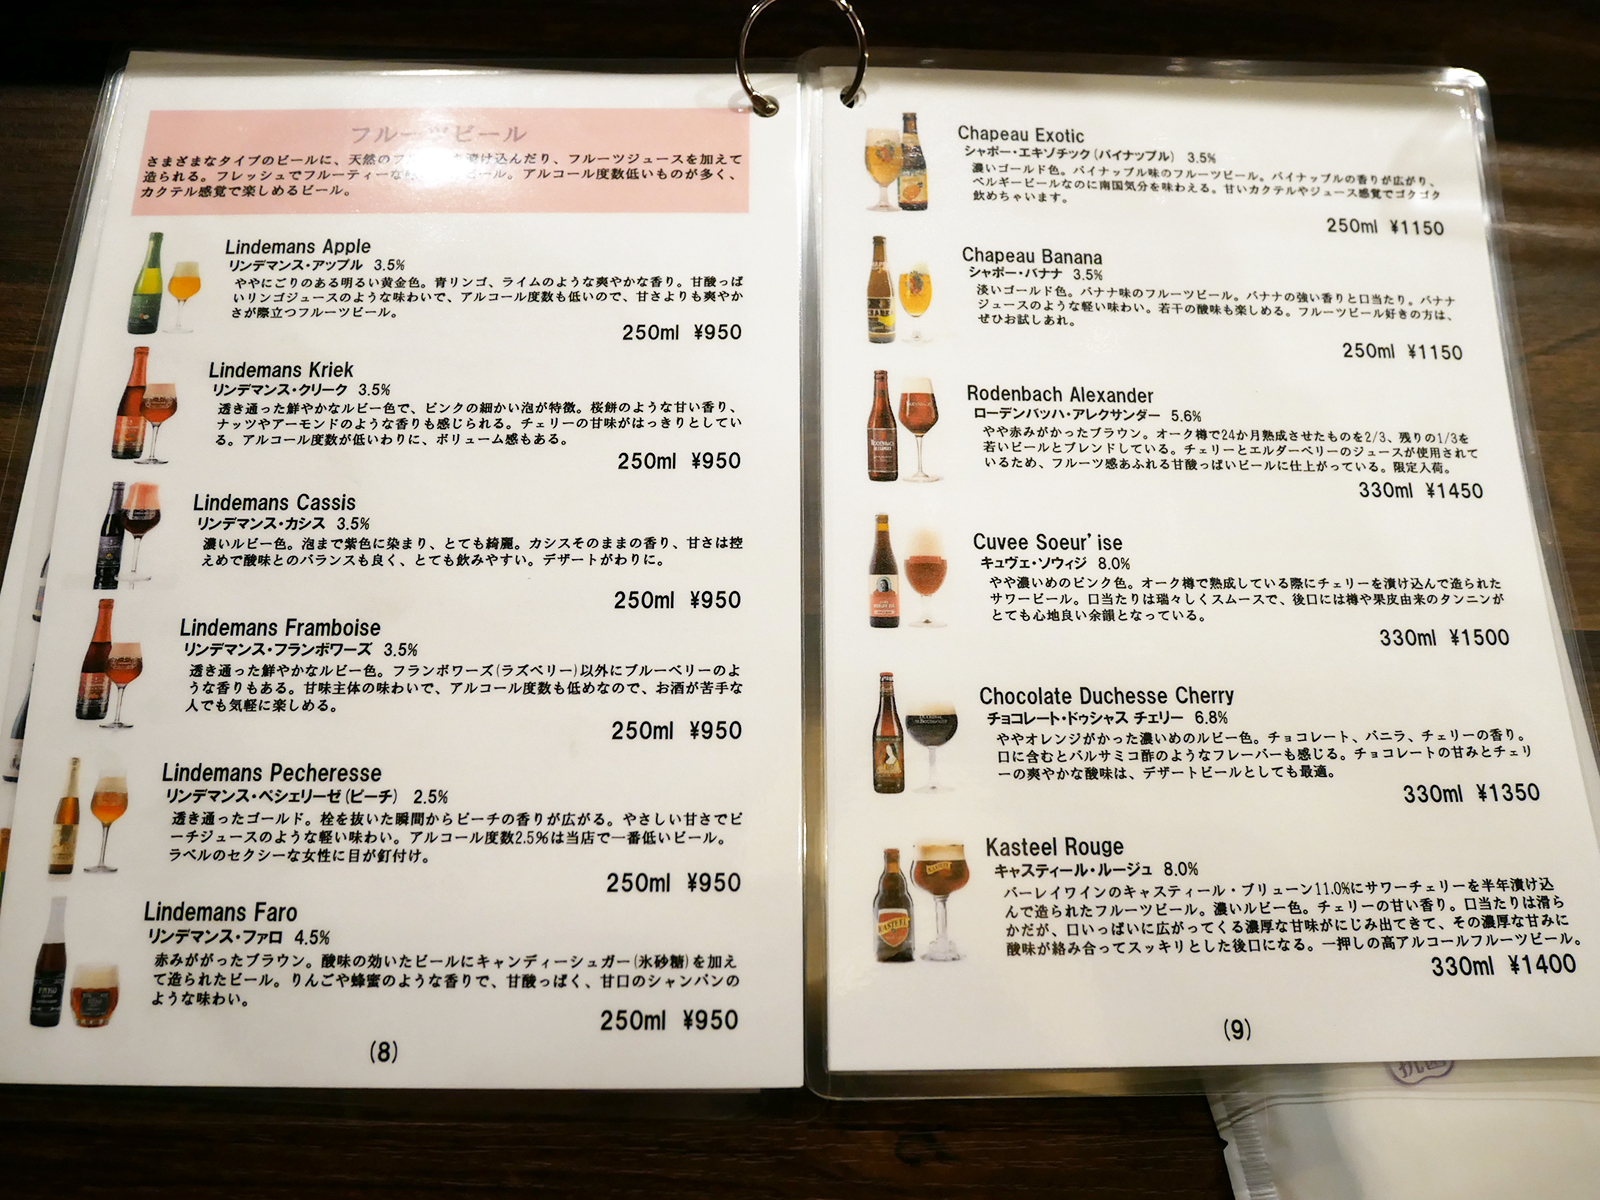 フルーツビール
さまざまなタイプのビールに、天然のフ 漬け込んだり、フルーツジュースを加えて
造られる。フレッシュでフルーティーな ビール。アルコール度数低いものが多く、
カクテル感覚で楽しめるビール。
Lindemans Apple
リンデマンス・アップル 3.5%
ややにごりのある明るい黄金色。青リンゴ、ライムのような爽やかな香り。甘酸っぱ
いリンゴジュースのような味わいで、アルコール度数も低いので、甘さよりも爽やか
さが際立つフルーツビール。
250ml ¥950
Lindemans Kriek
リンデマンス・クリーク 3.5%
透き通った鮮やかなルビー色で、ピンクの細かい泡が特徴。桜餅のような甘い香り、
ナッツやアーモンドのような香りも感じられる。チェリーの甘味がはっきりとしてい
る。アルコール度数が低いわりに、ボリューム感もある。
250ml ¥950
Lindemans Cassis
リンデマンス・カシス 3.5%
濃いルビー色。泡まで紫色に染まり、とても綺麗。カシスそのままの香り、甘さは控
えめで酸味とのバランスも良く、とても飲みやすい。デザートがわりに。
250ml ¥950
Lindemans Framboise
リンデマンス・フランボワーズ 3.5%
透き通った鮮やかなルビー色。フランボワーズ(ラズベリー)以外にブルーベリーのよ
うな香りもある。甘味主体の味わいで、アルコール度数も低めなので、お酒が苦手な
人でも気軽に楽しめる。
250ml ¥950
Lindemans Pecheresse
リンデマンス・ペシェリーゼ(ピーチ) 2.5%
透き通ったゴールド。栓を抜いた瞬間からピーチの香りが広がる。やさしい甘さでピ
ーチジュースのような軽い味わい。アルコール度数2.5%は当店で一番低いビール。
ラベルのセクシーな女性に目が釘付け。
250ml ¥950
Lindemans Faro
リンデマンス・ファロ 4.5%
赤みががったブラウン。酸味の効いたビールにキャンディーシュガー(氷砂糖)を加え
て造られたビール。りんごや蜂蜜のような香りで、甘酸っぱく、甘口のシャンパンの
ような味わい。
250ml ¥950
(8)
Chapeau Exotic
シャポー・エキゾチック(パイナップル) 3.5%
濃いゴールド色。パイナップル味のフルーツビール。パイナップルの香りが広がり、
ベルギービールなのに南国気分を味わえる。甘いカクテルやジュース感覚でゴクゴク
飲めちゃいます。
250ml ¥1150
Chapeau Banana
シャポー・バナナ 3.5%
淡いゴールド色。バナナ味のフルーツビール。バナナの強い香りと口当たり。バナナ
ジュースのような軽い味わい。若干の酸味も楽しめる。フルーツビール好きの方は、
ぜひお試しあれ。
250ml ¥1150
Rodenbach Alexander
ローデンバッハ・アレクサンダー 5.6%
やや赤みがかったブラウン。オーク樽で24か月熟成させたものを2/3、残りの1/3を
若いビールとブレンドしている。チェリーとエルダーベリーのジュースが使用されて
いるため、フルーツ感あふれる甘酸っぱいビールに仕上がっている。限定入荷。
330ml ¥1450
Cuvee Soeur'ise
キュヴェ・ソウィジ 8.0%
やや濃いめのピンク色。オーク樽で熟成している際にチェリーを漬け込んで造られた
サワービール。口当たりは瑞々しくスムースで、後口には樽や果皮由来のタンニンが
とても心地良い余韻となっている。
330ml ¥1500
Chocolate Duchesse Cherry
チョコレート・ドゥシャス チェリー 6.8%
ややオレンジがかった濃いめのルビー色。チョコレート、バニラ、チェリーの香り。
口に含むとバルサミコ酢のようなフレーバーも感じる。チョコレートの甘みとチェリ
ーの爽やかな酸味は、デザートビールとしても最適。
330ml ¥1350
Kasteel Rouge
キャスティール・ルージュ 8.0%
バーレイワインのキャスティール・ブリューン11.0%にサワーチェリーを半年漬け込
んで造られたフルーツビール。濃いルビー色。チェリーの甘い香り。口当たりは滑ら
かだが、口いっぱいに広がってくる濃厚な甘味がにじみ出てきて、その濃厚な甘みに
酸味が絡み合ってスッキリとした後口になる。一押しの高アルコールフルーツビール。
330ml ¥1400
(9)